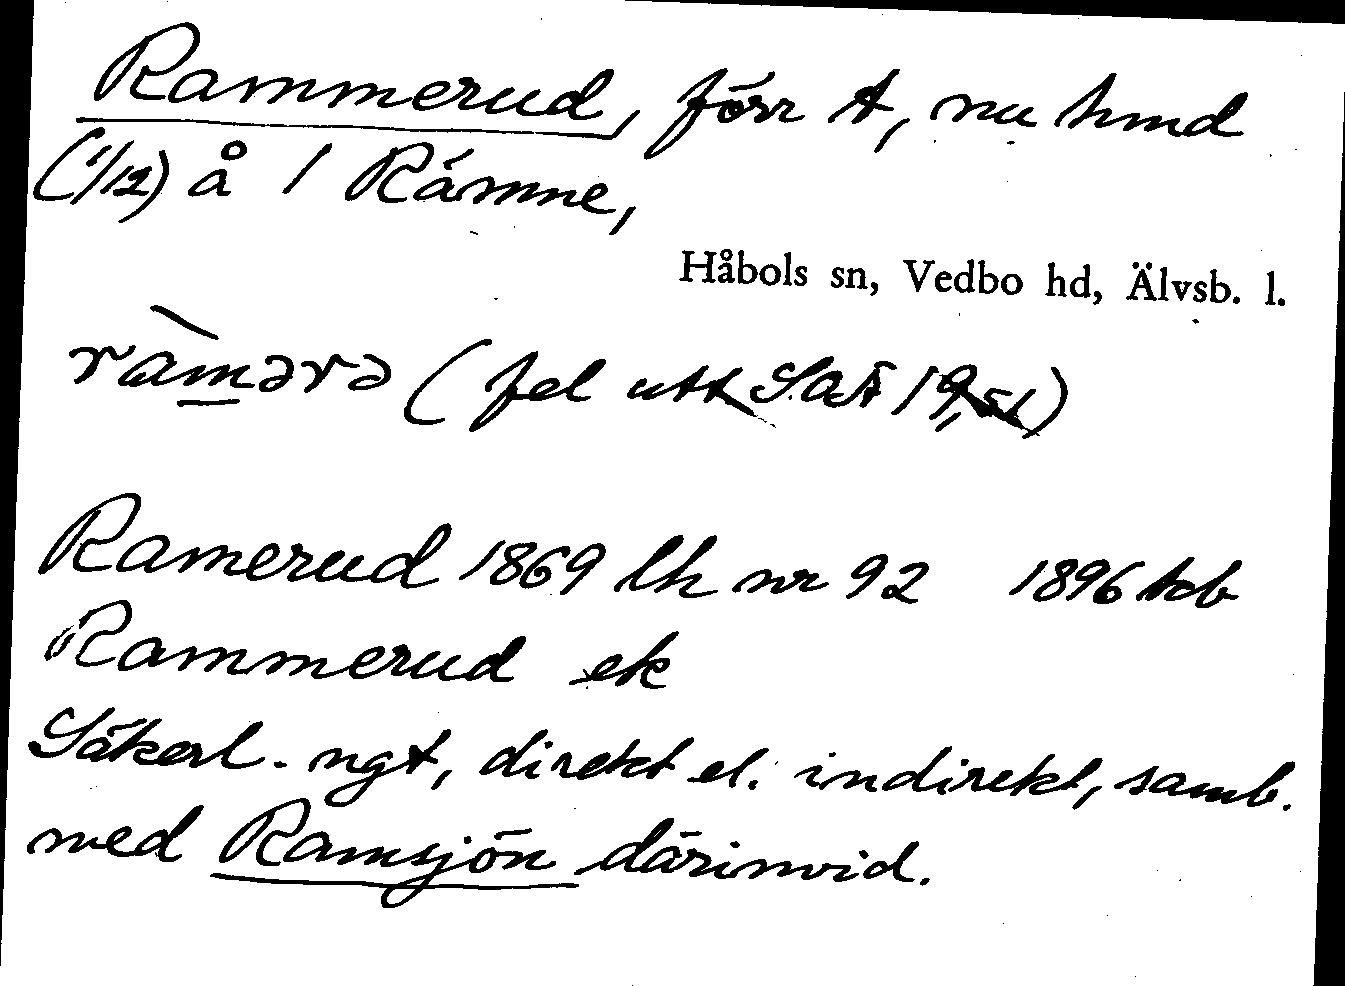 Rammerud, förr t, nu hmd
(1/12) å 1 Rämne,
Håbols sn, Vedbo hd, Älvsb. l.
ràmərə (fel utt SOÄ 19,
Ramerud 1869 lh nr 92 1896 tob
Rammerud ek
Säkerl. ngt, direkt el. indirekt, samb.
med Ramsjön därinvid.